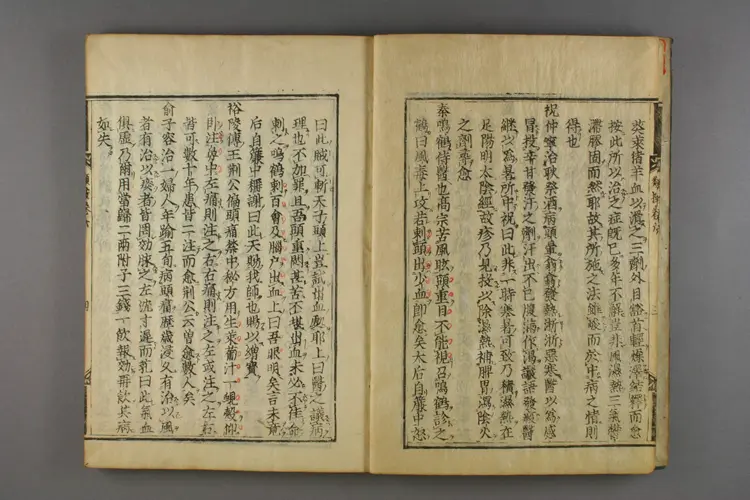 求猪羊血以之三劑外目谿首輕燥結釋而愈
按此所以治之症既已多年不解非風濕熱三氣鬱
滯膠固而然耶故其所施之法雖峻而於中病之情則
得也
祝仲寧治耿祭酒病頭暈翕翕發熱淅淅惡寒醫以為感
冒投辛甘發汗之劑汗出不已脣燥作渴譫語發斑醫
繼以為暑所中祝曰此非一時寒暑可致乃積濕熱在
足陽明太陰經故疹乃見投以除濕熱補脾胃瀉陰火
之劑尋愈
秦鳴鶴侍醫也高宗苦風眩頭重目不能視召鳴鶴診之
鶴曰風毒上攻若刺頭出少血即愈矣太后自簾中怒
曰此賊可斬天子頭上豈試出血處耶上曰醫之議病
理也不加罪且吾頭重悶甚苦不堪出血未必不佳命
刺之鳴鶴刺百會及腦户出血上曰吾眼明矣言未竟
后自簾中稱謝曰此天賜我師也賜以繒寶
裕陵傳王荆公偏頭痛禁中秘方用生萊菔汁一蜆殻仰
卧注鼻中左痛則注之右右痛則注之左或注之左右
皆可數十年患皆二注而愈荆公云曾愈數人矣
俞子容治一婦人年踰五旬病頭痛歷歲浸久有治以風
者有治以痰者皆罔効脉之左沉寸遲而芤曰此氣血
俱虛乃爾用當歸二兩附子三錢一飲報効再飲其病
如失